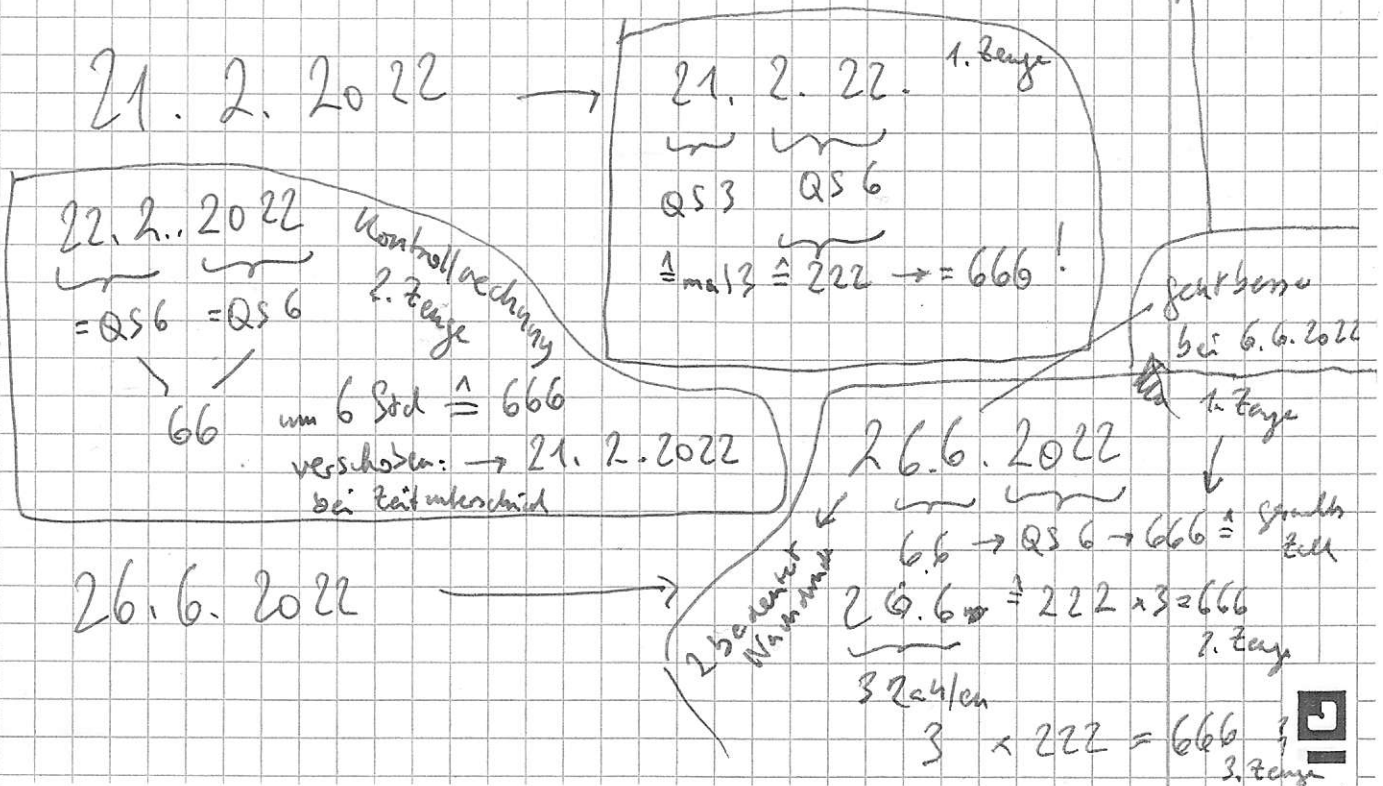 21. 2. 2022 →
21. 2. 22. 1. Zeuge
QS 3 QS 6
≙ mal 3 ≙ 222 → = 666 !
22. 2.. 2022 Kontrollrechnung
2. Zeuge
= QS 6 = QS 6
66
um 6 Std ≙ 666
verschoben: → 21. 2. 2022
bei Zeitunterschied
geht besser
bei 6.6.2022
1. Zeuge
26. 6. 2022 →
26.6. 2022
6.6 → QS 6 → 666 ≙
2 bedeutet
Nachdruck
2 6.6. ≙ 222 x 3 = 666
2. Zeuge
3 Zahlen
3 x 222 = 666
3. Zeuge